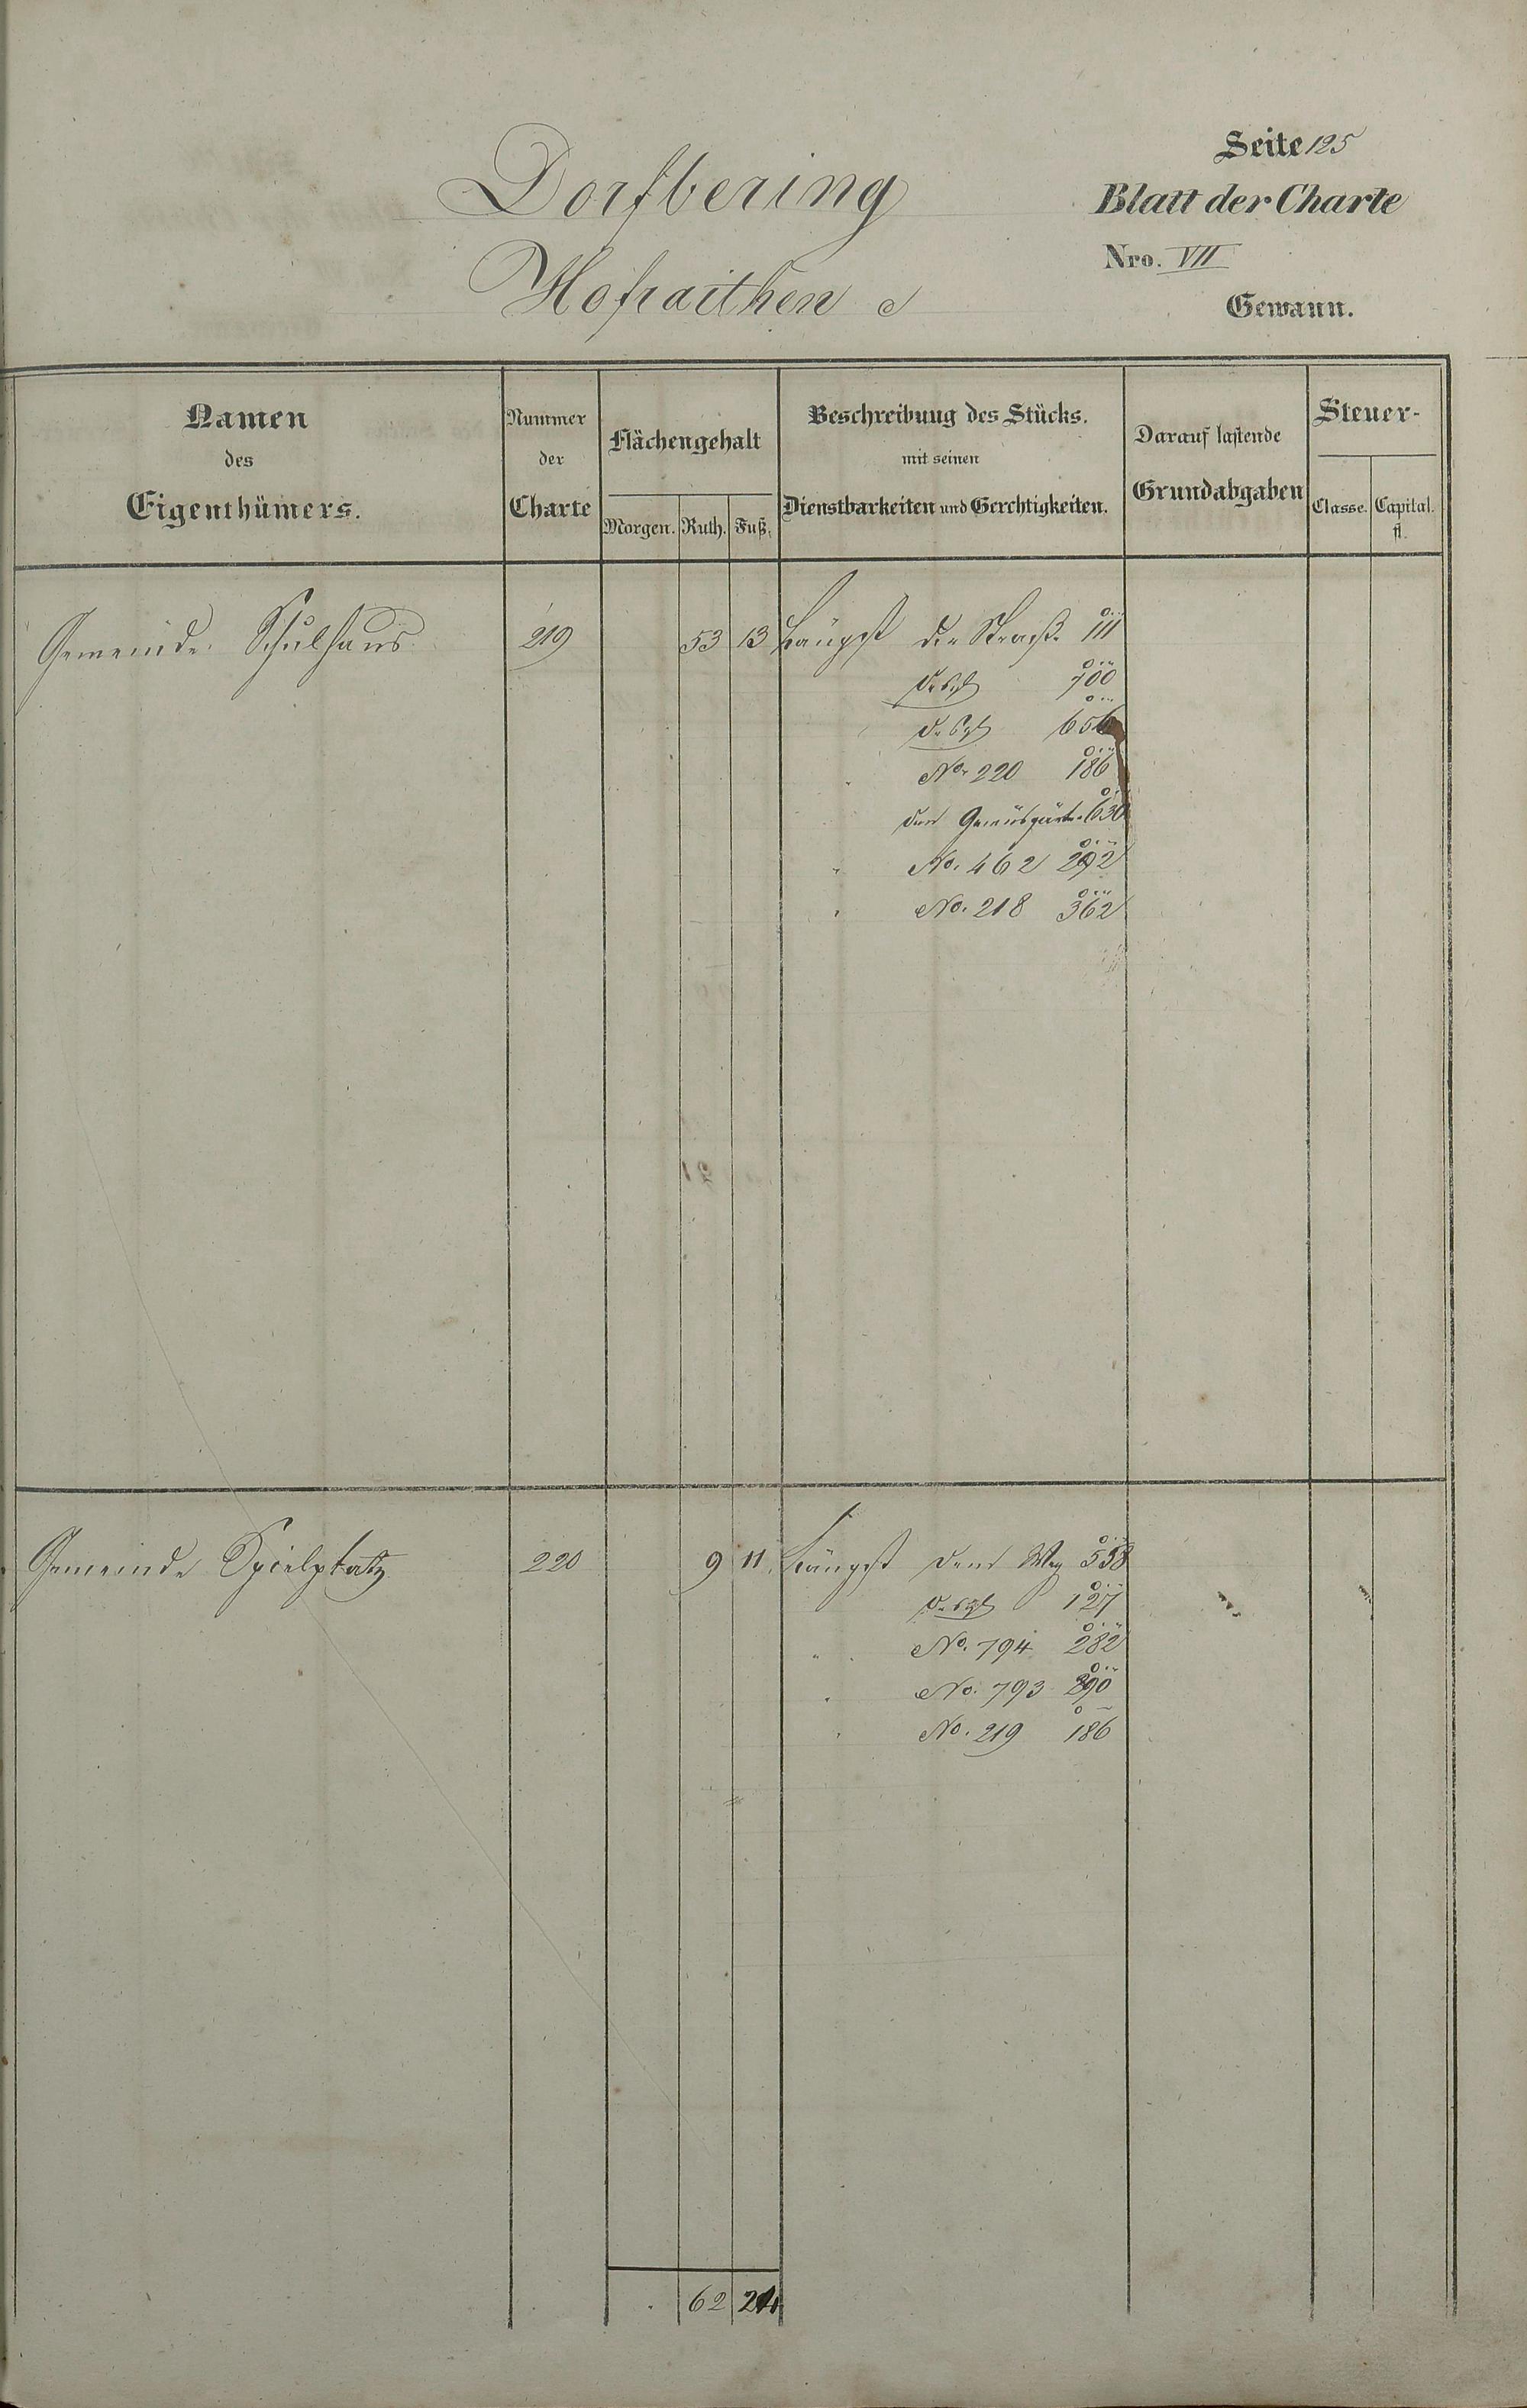 Seite 125
Dorfbering
Blatt der Charte
Nro. VII
Hofraithen
Gewann.
Namen
des
Eigenthümers.
Nummer
der
Charte
Flächengehalt
Morgen. Ruth. Fuß.
Beschreibung des Stücks.
mit seinen
Dienstbarkeiten und Gerechtigkeiten.
Darauf lastende
Grundabgaben
Steuer-
Classe. Capital.
fl.
Gemeinde Schulhaus 219 53 13 Längst der Straße 111
desgl 700
desgl 656
No. 220 186
den 630
" No. 462 292
" No. 218 362
Gemeinde Spielplatz 220 9 11 Längst dem Weg 558
desgl 127
" No. 794 282
" No. 793 290
" No. 219 186
62 24